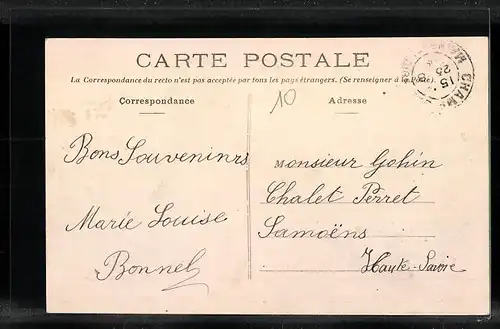 CARTE POSTALE
La Correspondance du recto n'est pas acceptée par tous les pays étrangers. (Se renseigner à la Poste)
Correspondance
10
Adresse
Bons Souveninrs
Marie Louise
Bonnel
Monsieur Gohin
Chalet Perret
Samoëns
Haute-Savoie
CHAM
15
25